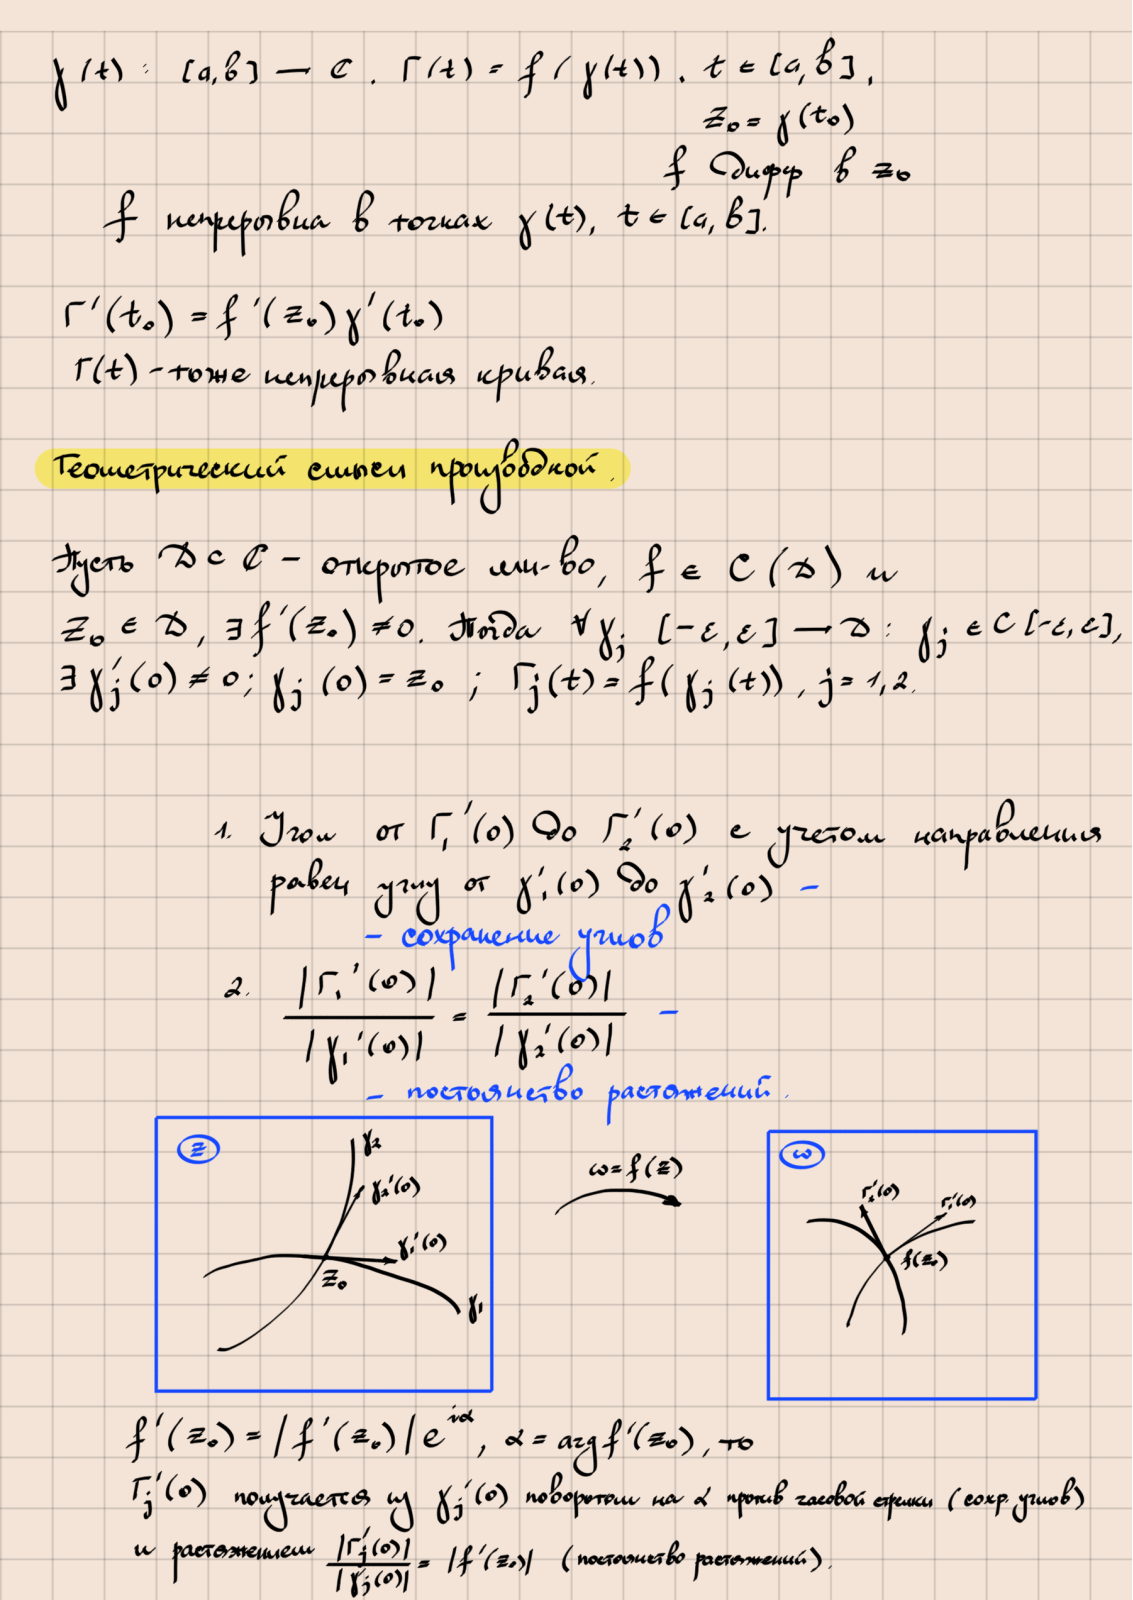 γ(t) : [a,b] — ℂ. Γ(t) = f(γ(t)). t ∈ [a,b],
z₀ = γ(t₀)
f дифф в z₀
f непрерывна в точках γ(t), t ∈ [a,b].
Γ'(t₀) = f'(z₀)γ'(t₀)
Γ(t) - тоже непрерывная кривая.
Геометрический смысл производной.
Пусть D ⊂ ℂ - открытое мн-во, f ∈ C(D) и
z₀ ∈ D, ∃ f'(z₀) ≠ 0. Тогда ∀ γⱼ [-ε,ε] → D : γⱼ ∈ C[-ε,ε],
∃ γⱼ'(0) ≠ 0; γⱼ(0) = z₀ ; Γⱼ(t) = f(γⱼ(t)), j = 1,2.
1. Угол от Γ₁'(0) до Γ₂'(0) с учетом направления
равен углу от γ₁'(0) до γ₂'(0) -
- сохранение углов
2. |Γ₁'(0)| / |γ₁'(0)| = |Γ₂'(0)| / |γ₂'(0)| -
- постоянство растяжений.
z
γ₂
γ₂'(0)
γ₁'(0)
z₀
γ₁
ω = f(z)
ω
Γ₂'(0)
Γ₁'(0)
f(z₀)
f'(z₀) = |f'(z₀)|e^{iα}, α = arg f'(z₀), то
Γⱼ'(0) получается из γⱼ'(0) поворотом на α против часовой стрелки (сохр. углов)
и растяжением |Γⱼ'(0)| / |γⱼ'(0)| = |f'(z₀)| (постоянство растяжений).